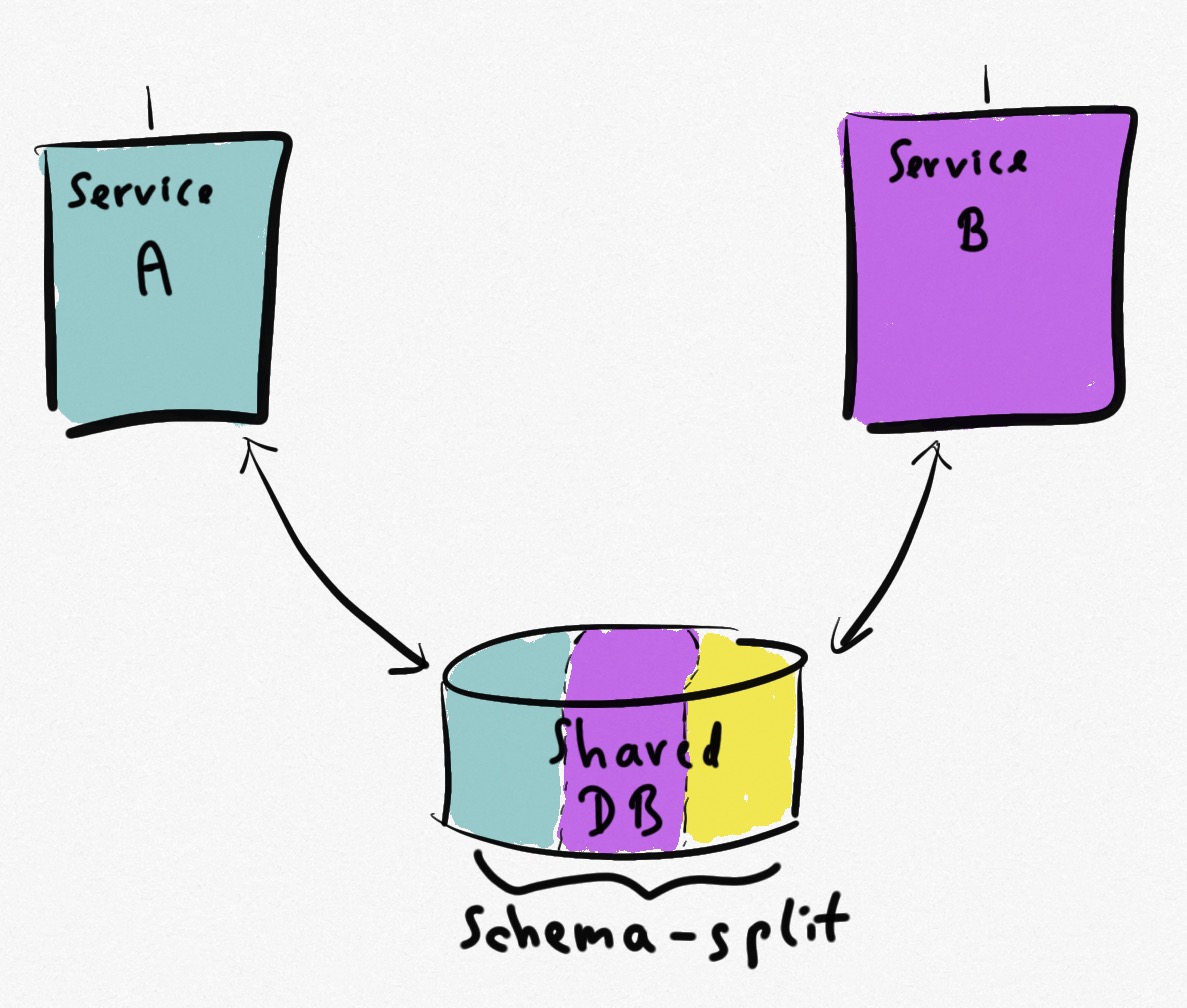 Service
A
Service
B
Shared
DB
Schema-split